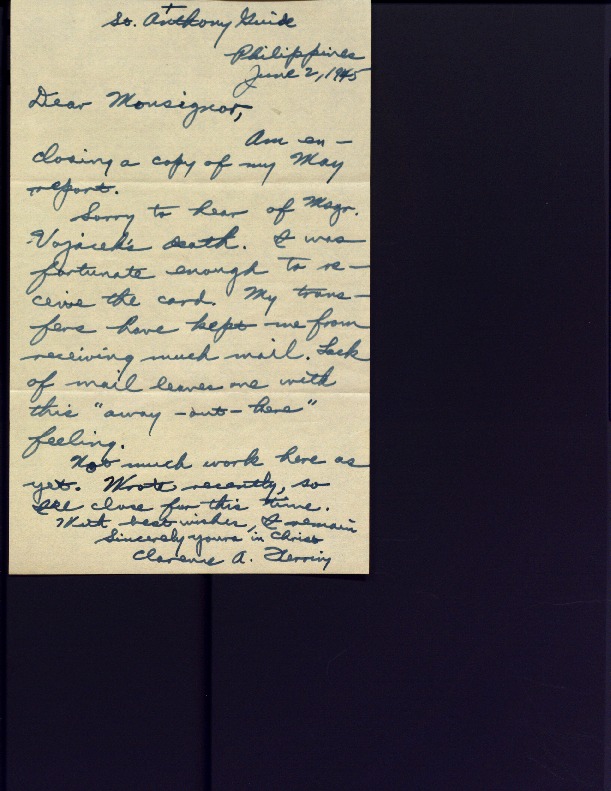 St. Anthony Guide
Philippines
June 2, 1945
Dear Monsignor,
Am en-
closing a copy of my May
report.
Sorry to hear of Msgr.
Vojacek's death. I was
fortunate enough to re-
ceive the card. My trans-
fers have kept me from
receiving much mail. Lack
of mail leaves me with
this "away-out-here"
feeling.
Not much work here as
yet. Wrote recently, so
I'll close for this time.
With best wishes, I remain
Sincerely yours in Christ
Clarence A.